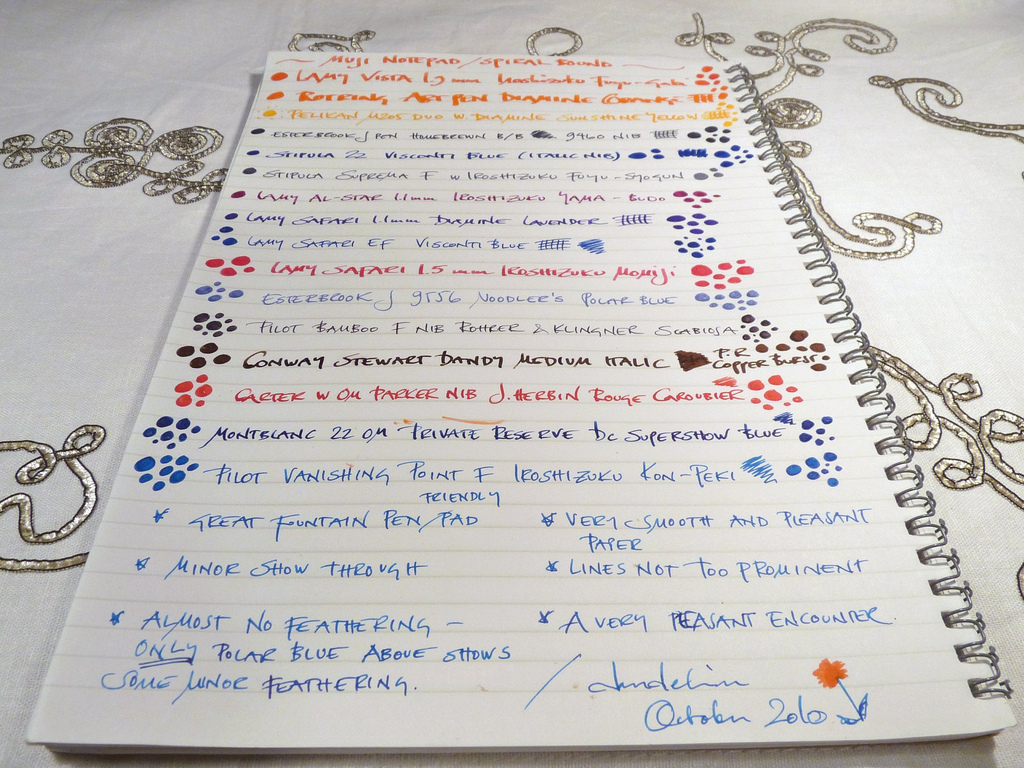 ~ MUJI NOTEPAD/SPIRAL BOUND ~
LAMY VISTA 1.9 mm IROSHIZUKU FUYU-GAKI
ROTRING ART PEN DIAMINE ORANGE
PELIKAN M205 DUO W. DIAMINE SUNSHINE YELLOW
ESTERBROOK J PEN HOMEBREWN B/B 9460 NIB
STIPULA 22 VISCONTI BLUE (ITALIC NIB)
STIPULA SUPREMA F W IROSHIZUKU FUYU-SYOGUN
LAMY AL-STAR 1.1mm IROSHIZUKU YAMA-BUDO
LAMY SAFARI 1.1mm DIAMINE LAVENDER
LAMY SAFARI EF VISCONTI BLUE
LAMY SAFARI 1.5 mm IROSHIZUKU MOMIJI
ESTERBROOK J 9556 NOODLER'S POLAR BLUE
PILOT BAMBOO F NIB ROHRER & KLINGNER SCABIOSA
CONWAY STEWART DANDY MEDIUM ITALIC P.R COPPER BURST
CARTEK W OM PARKER NIB J. HERBIN ROUGE CAROUBIER
MONTBLANC 22 OM PRIVATE RESERVE DC SUPERSHOW BLUE
PILOT VANISHING POINT F IROSHIZUKU KON-PEKI
FRIENDLY
* GREAT FOUNTAIN PEN/PAD
* VERY SMOOTH AND PLEASANT
PAPER
* MINOR SHOW THROUGH
* LINES NOT TOO PROMINENT
* ALMOST NO FEATHERING -
ONLY POLAR BLUE ABOVE SHOWS
SOME MINOR FEATHERING.
* A VERY PLEASANT ENCOUNTER.
October 2010